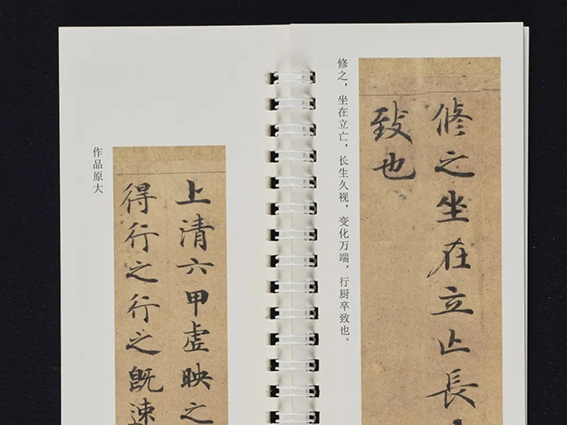 作品原大
上清六甲虚映之
得行之行之既速
修之，坐在立亡，长生久视，变化万端，行厨卒致也。
脩之坐在立亡長
致也